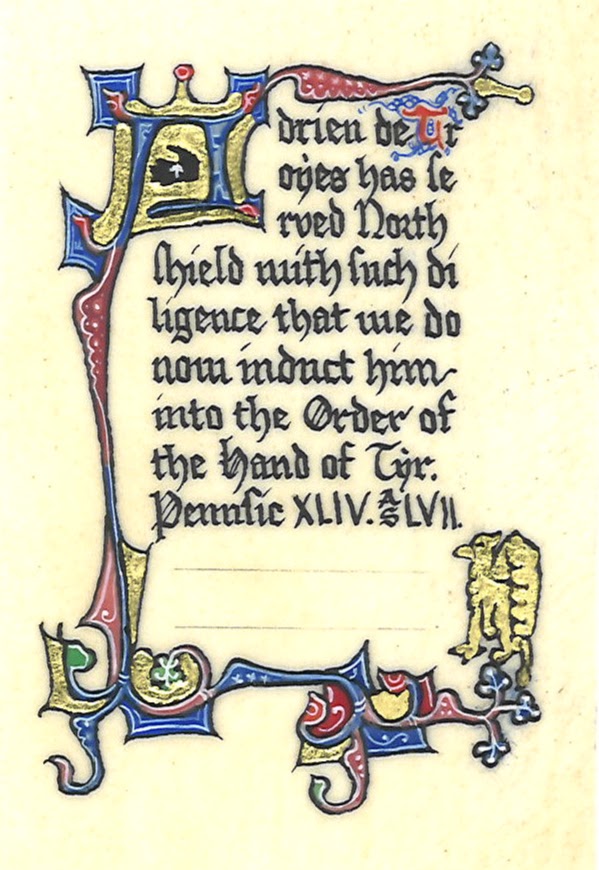 Adrien de Tr
oyes has ſe
rved North
ſhield with ſuch di
ligence that we do
now induct him
into the Order of
the Hand of Tyr.
Pennſic XLIV. AS LVII.